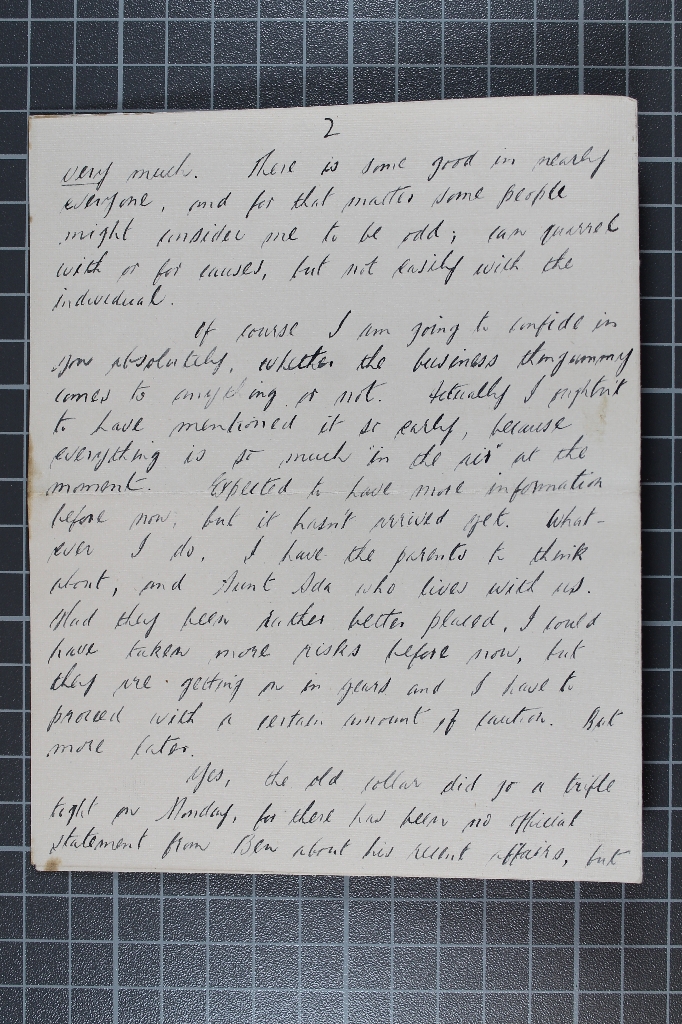 2
very much. There is some good in nearly
everyone, and for that matter some people
might consider me to be odd; can quarrel
with or for causes, but not easily with the
individual.
Of course I am going to confide in
you absolutely, whether the business thingummy
comes to anything or not. Actually I oughtn't
to have mentioned it so early, because
everything is so much "in the air" at the
moment. Expected to have more information
before now, but it hasn't arrived yet. What-
ever I do, I have the parents to think
about, and Aunt Ada who lives with us.
Had they been rather better placed, I could
have taken more risks before now, but
they are getting on in years and I have to
proceed with a certain amount of caution. But
more later.
Yes, the old collar did go a trifle
tight on Monday, for there has been no official
statement from Ben about his recent affairs, but